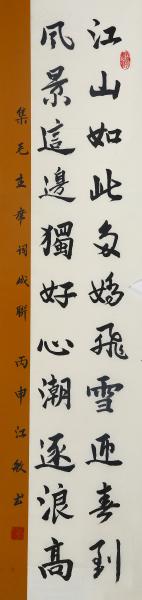 江山如此多娇飛雪迎春到
風景這邊獨好心潮逐浪高
集毛主席词成联 丙申 江敏书